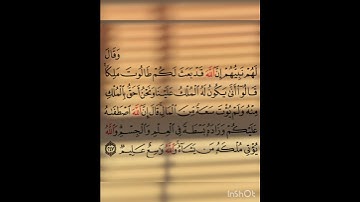 وَقَالَ
لَهُمْ نَبِيُّهُمْ إِنَّ ٱللَّهَ قَدْ بَعَثَ لَكُمْ طَالُوتَ مَلِكًا
قَالُوٓا۟ أَنَّىٰ يَكُونُ لَهُ ٱلْمُلْكُ عَلَيْنَا وَنَحْنُ أَحَقُّ بِٱلْمُلْكِ
مِنْهُ وَلَمْ يُؤْتَ سَعَةً مِّنَ ٱلْمَالِ قَالَ إِنَّ ٱللَّهَ ٱصْطَفَىٰهُ
عَلَيْكُمْ وَزَادَهُۥ بَسْطَةً فِى ٱلْعِلْمِ وَٱلْجِسْمِ وَٱللَّهُ
يُؤْتِى مُلْكَهُۥ مَن يَشَآءُ وَٱللَّهُ وَٰسِعٌ عَلِيمٌ ٢٤٧
InShOt